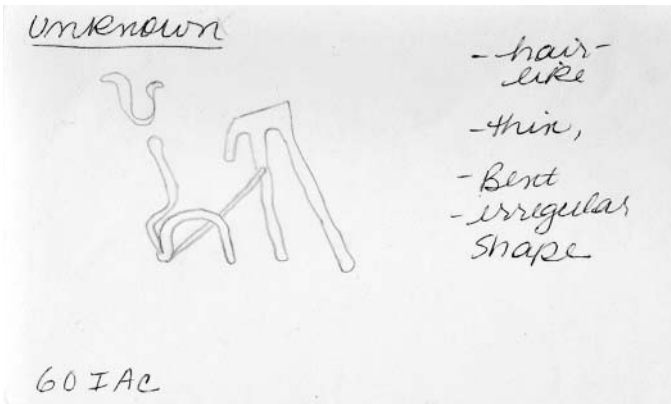 Unknown
- hair-
like
- thin,
- Bent
- irregular
shape
60IAC